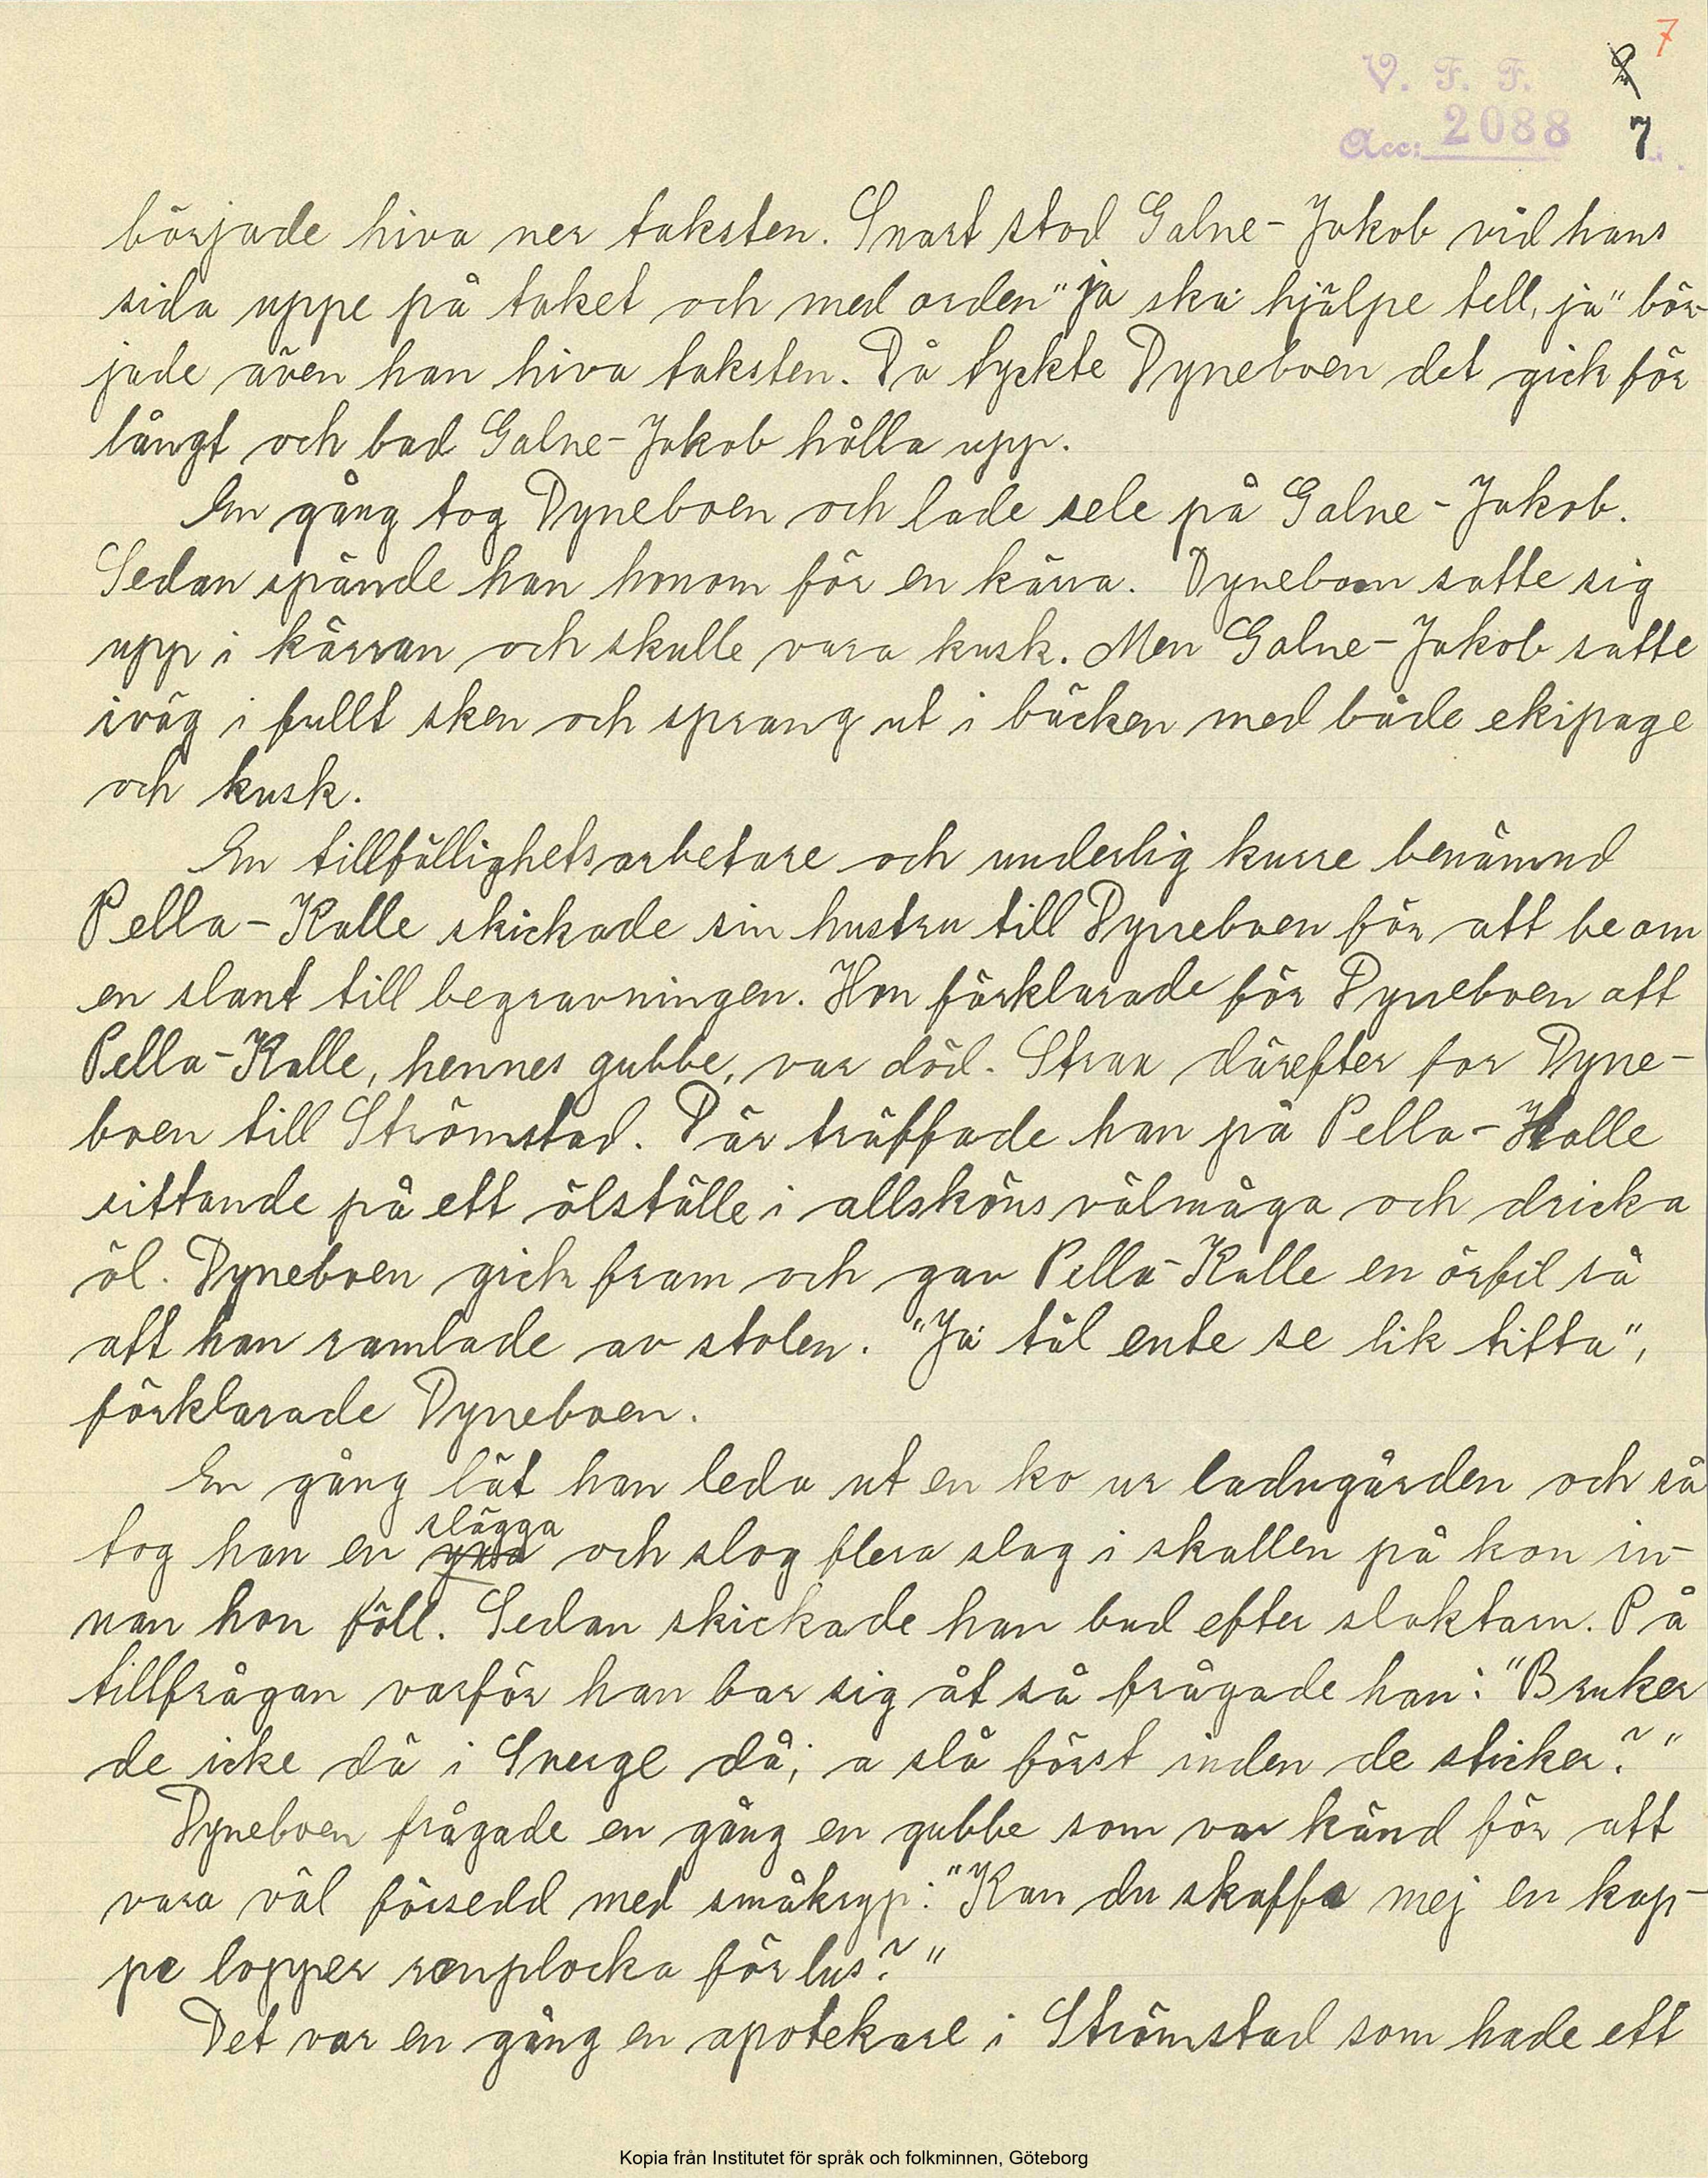 7
V. F. F.
Acc: 2088 7.
började hiva ner taksten. Snart stod Galne-Jakob vid hans
sida uppe på taket och med orden "ja ska hjälpe tell, ja" bör-
jade även han hiva taksten. Då tyckte Dyneboen det gick för
långt och bad Galne-Jakob hålla upp.
En gång tog Dyneboen och lade sele på Galne-Jakob.
Sedan spände han honom för en kärra. Dyneboen satte sig
upp i kärran och skulle vara kusk. Men Galne-Jakob satte
iväg i fullt sken och sprang ut i bäcken med både ekipage
och kusk.
En tillfällighetsarbetare och underlig kurre benämnd
Pella-Kalle skickade sin hustru till Dyneboen för att be om
en slant till begravningen. Hon förklarade för Dyneboen att
Pella-Kalle, hennes gubbe, var död. Strax därefter for Dyne-
boen till Strömstad. Där träffade han på Pella-Kalle
sittande på ett ölställe i allsköns välmåga och dricka
öl. Dyneboen gick fram och gav Pella-Kalle en örfil så
att han ramlade av stolen. "Ja tål ente se lik titta",
förklarade Dyneboen.
En gång lät han leda ut en ko ur ladugården och så
tog han en slägga och slog flera slag i skallen på kon in-
nan hon föll. Sedan skickade han bud efter slaktarn. På
tillfrågan varför han bar sig åt så frågade han: "Bruker
de icke då i Sverge då; a slå först inden de sticker?"
Dyneboen frågade en gång en gubbe som var känd för att
vara väl försedd med småkryp: "Kan du skaffa mej en kap-
pe lopper renplocka för lus?"
Det var en gång en apotekare i Strömstad som hade ett
Kopia från Institutet för språk och folkminnen, Göteborg